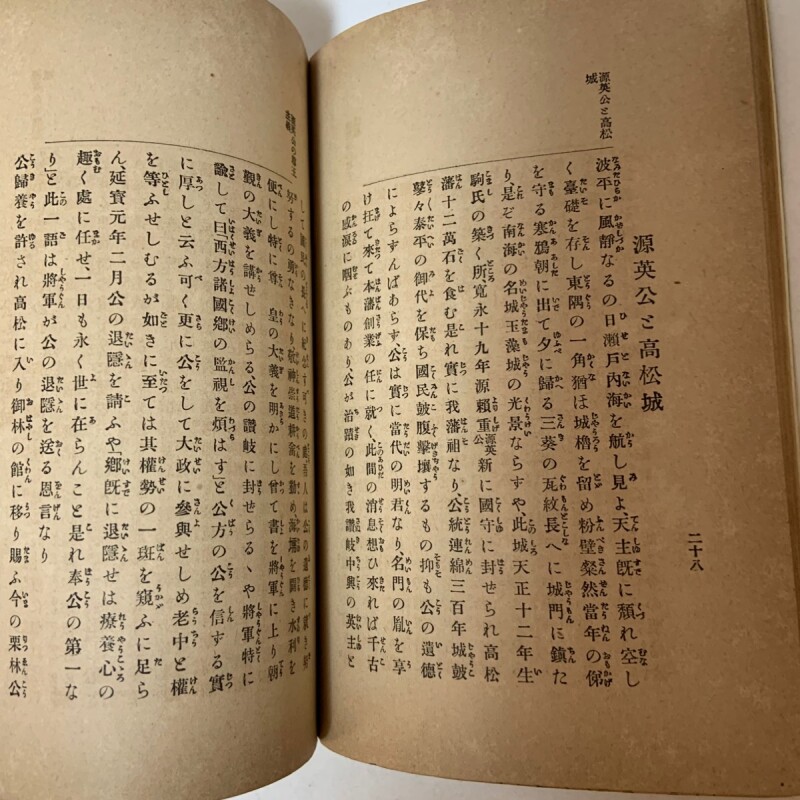 源英公と高松城
二十八
源英公と高松城
波平に風靜なるの日瀬戸內海を航し見よ、天主旣に頽れ空し
く臺礎を存し東隅の一角猶ほ城櫓を留め粉壁粲然當年の俤
を守る寒鴉朝に出て夕に歸る三葵の瓦紋長へに城門に鎭た
り、是ぞ南海の名城玉藻城の光景ならすや、此城天正十二年生
駒氏の築く所寬永十九年源賴重源英公新に國守に封せられ高松
藩十二萬石を食む是れ實に我藩祖なり、公統連綿三百年城鼓
鼕々泰平の御代を保ち國民鼓腹擊壤するもの抑も公の遺德
によらすんばあらす、公は實に當代の明君なり、名門の胤を享
け抂て來て本藩創業の任に就く、此間の消息想ひ來れば千古
の感淚に咽ぶものあり、公が治蹟の如き我讃岐中興の英主と
して
便にし特に尊皇の大義を明かにし曾て書を將軍に上り朝
覲の大義を講せしめらる、公の讃岐に封せらるゝや將軍特に
諭して曰「西方諸國鄕の監視を煩はす」と公方の公を信する實
に厚しと云ふ可く更に公をして大政に參與せしめ老中と權
を等ふせしむるが如きに至ては其權勢の一斑を窺ふに足ら
ん、延寶元年二月公の退隱を請ふや「鄕旣に退隱せは療養心の
趣く處に任せ、一日も永く世に在らんこと是れ奉公の第一な
り」と此一語は將軍が公の退隱を送る恩言なり
公歸養を許され高松に入り御林の館に移り賜ふ今の栗林公